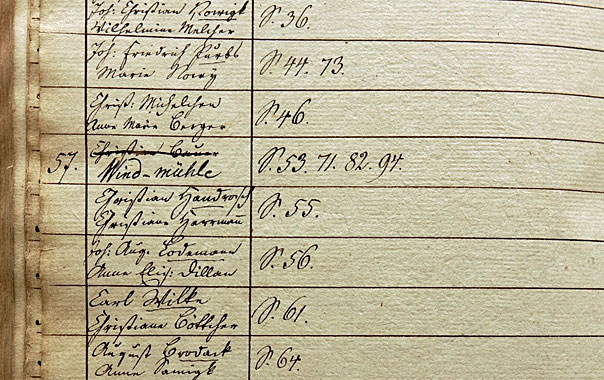 Joh: Christian Nowigk
Wilhelmine Melcher
S. 36.
Joh: Friedrich Purbs
Marie Nowy
S. 44. 73.
Christ: Michelchen
Anne Marie Berger
S. 46.
57.
Christian Bauer
Wind-mühle
S. 53. 71. 82. 94.
Christian Handrosch
Christiane Herrmann
S. 55.
Joh: Aug. Lodemann
Anne Elis: Dillan
S. 56.
Carl Wilke
Christiane Böttcher
S. 61.
August Brodack
Anne Samigk
S. 64.